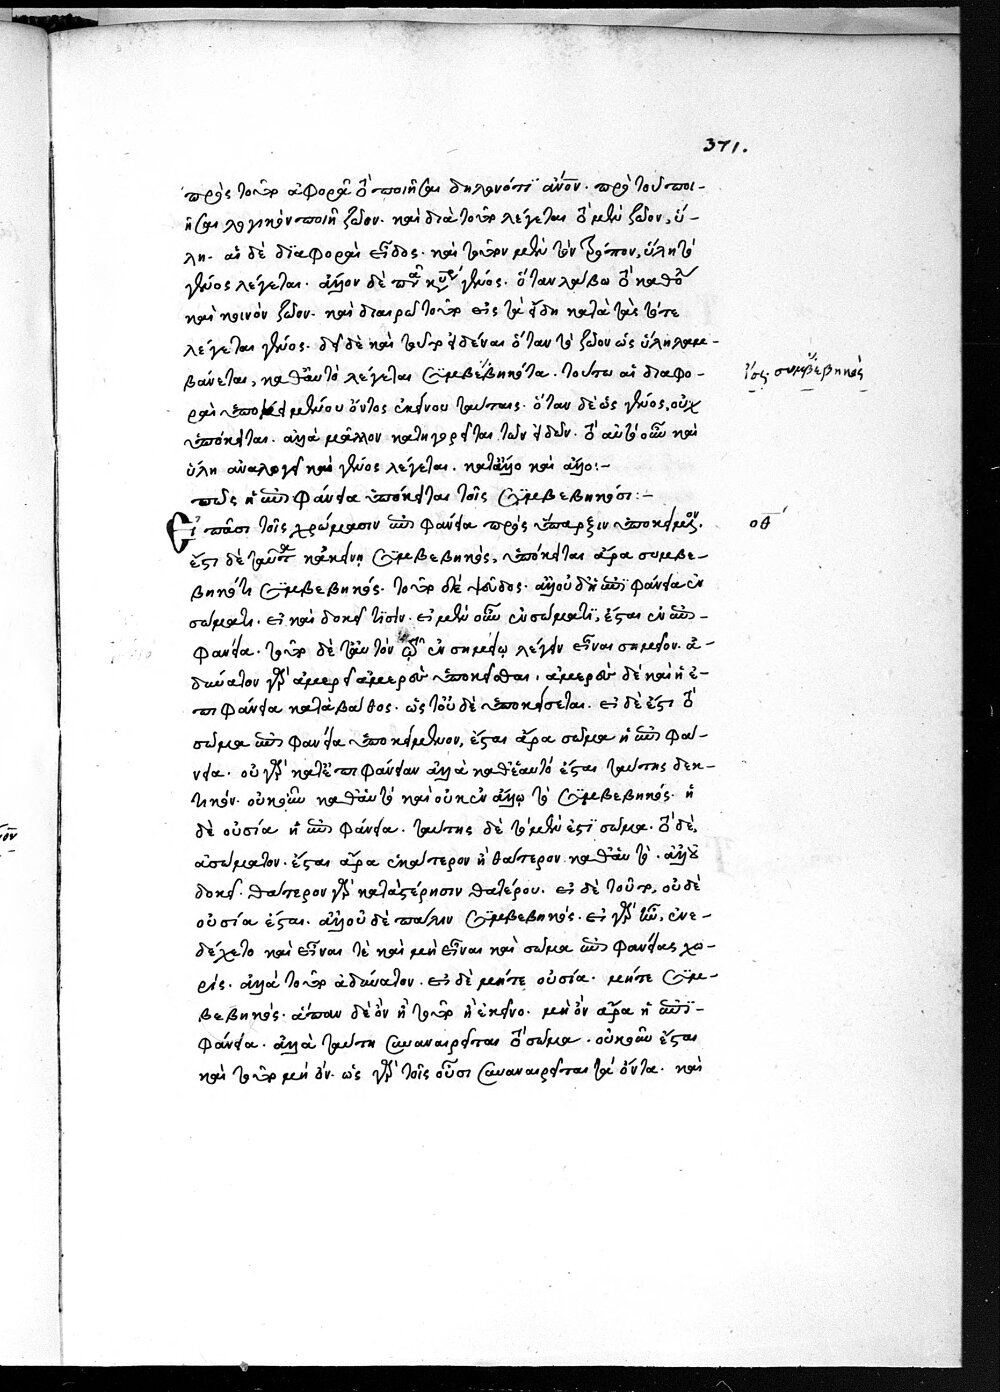 371.
πρὸς τοῦτο ἀφορᾶ τὸ ποιῆσαι δηλονότι ἄνον. πρὸ τοῦ ποι-
ῆσαι λογικὸν ποιῆ ζῶον. καὶ διὰ τοῦτο λέγεται τὸ μὲν ζῶον, ὕ-
λη. αἱ δὲ διαφοραὶ εἶδος. καὶ τοῦτον μὲν τὸν τρόπον, ὕλη τὸ
γένος λέγεται. ἄλλον δὲ γένος. ὅταν λάβω τὸ καθόλου
καὶ κοινὸν ζῶον. καὶ διαιρῶ τοῦτο εἰς τὰ εἴδη κατὰ τὰς τότε
λέγεται γένος. δεῖ δὲ καὶ τοῦτο εἰδέναι ὅταν τὸ ζῶον ὡς ὕλη λαμ-
βάνεται, καθ' αὑτὸ λέγεται συμβεβηκότα. τούτω αἱ διαφο-
ραὶ ὑποκειμένου ὄντος ἐκείνου ταύταις. ὅταν δὲ ὡς γένος, οὐχ
ὑπόκειται. ἀλλὰ μᾶλλον κατηγορεῖται τῶν εἰδῶν. τὸ αὐτὸ οὖν καὶ
ὕλη ἀναλογεῖ καὶ γένος λέγεται. κατ' ἄλλο καὶ ἄλλο:-
ἴσως συμβεβηκὸς
πῶς ἡ ἐπιφάνεια ὑπόκειται τοῖς συμβεβηκόσι:-
οθ΄
Εἰ πᾶσι τοῖς χρώμασιν ἐπιφάνεια πρὸς ὕπαρξιν ὑποκείμενον.
ἔστι δὲ ταῦτα κἀκείνη συμβεβηκὸς, ὑπόκειται ἄρα συμβε-
βηκότι συμβεβηκός. τοῦτο δὲ ψεῦδος. ἀλλ' οὐδὴ ἐπιφάνεια ἐν
σώματι. εἰ καὶ δοκεῖ τισίν. εἰ μὲν οὖν ἐν σώματι, ἔσται ἐν ἐπι-
φανεία. τοῦτο δὲ ταὐτὸν τῶ ἐν σημείω λέγειν εἶναι σημεῖον. ἀ-
δύνατον γὰρ ἀμερεῖ ἀμεροῦν ὑποκεῖσθαι. ἀμεροῦν δὲ καὶ ἡ ἐ-
πιφάνεια κατὰ βάθος. ὥστ' οὐδὲ ὑποκείσεται. εἰ δὲ ἔστι τὸ
σῶμα ἐπιφάνεια ὑποκείμενον, ἔσται ἄρα σῶμα ἡ ἐπιφά-
νεια. οὐ γὰρ κατ' ἐπιφάνειαν ἀλλὰ καθ' ἑαυτὸ ἔσται ταύτης δεκ-
τικόν. οὐκοῦν καθ' αὑτὸ καὶ οὐκ ἐν ἄλλω τὸ συμβεβηκός. ἢ
δὲ οὐσία ἡ ἐπιφάνεια. ταύτης δὲ τὸ μὲν ἐστὶ σῶμα. τὸ δὲ,
ἀσώματον. ἔσται ἄρα ἑκάτερον ἢ θάτερον καθ' αὑτό. ἀλλ' οὐ
δοκεῖ. θάτερον γὰρ κατὰ στέρησιν θατέρου. εἰ δὲ τοῦτο, οὐδὲ
οὐσία ἔσται. ἀλλ' οὐδὲ πάλιν συμβεβηκός. εἰ γὰρ ἦν, ἐνε-
δέχετο καὶ εἶναί τε καὶ μὴ εἶναι καὶ σῶμα ἐπιφανείας χω-
ρίς. ἀλλὰ τοῦτο ἀδύνατον. εἰ δὲ μήτε οὐσία. μήτε συμ-
βεβηκός. ἅπαν δὲ ὂν ἢ τοῦτο ἢ ἐκεῖνο. μὴ ὂν ἄρα ἡ ἐπι-
φάνεια. ἀλλὰ ταύτη συναναιρεῖται τὸ σῶμα. οὐκοῦν ἔσται
καὶ τοῦτο μὴ ὄν. ὡς γὰρ τοῖς οὖσι συναναιρεῖται τὰ ὄντα. καὶ